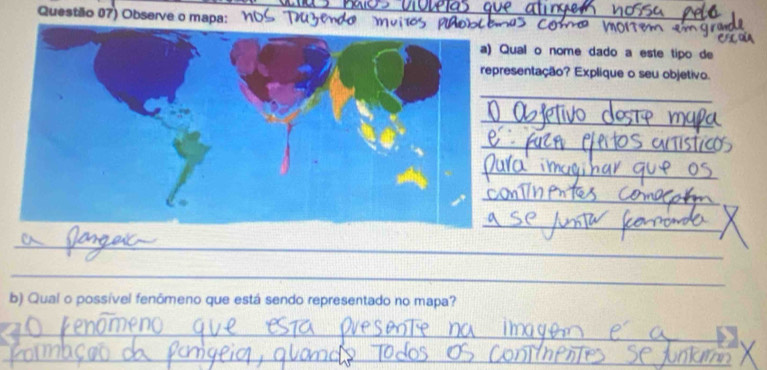 raios violetas que atingem nossa pele
Questão 07) Observe o mapa: nos trazendo muitos problemas como mortem em grande
escala
a) Qual o nome dado a este tipo de
representação? Explique o seu objetivo.
O objetivo deste mapa
é: fazer efeitos artisticos
para imaginar que os
continentes começam
a se juntar formando X
a pangeia
b) Qual o possível fenômeno que está sendo representado no mapa?
O fenômeno que esta presente na imagem e a
formação da pangeia, quando Todos os continentes se juntaram X